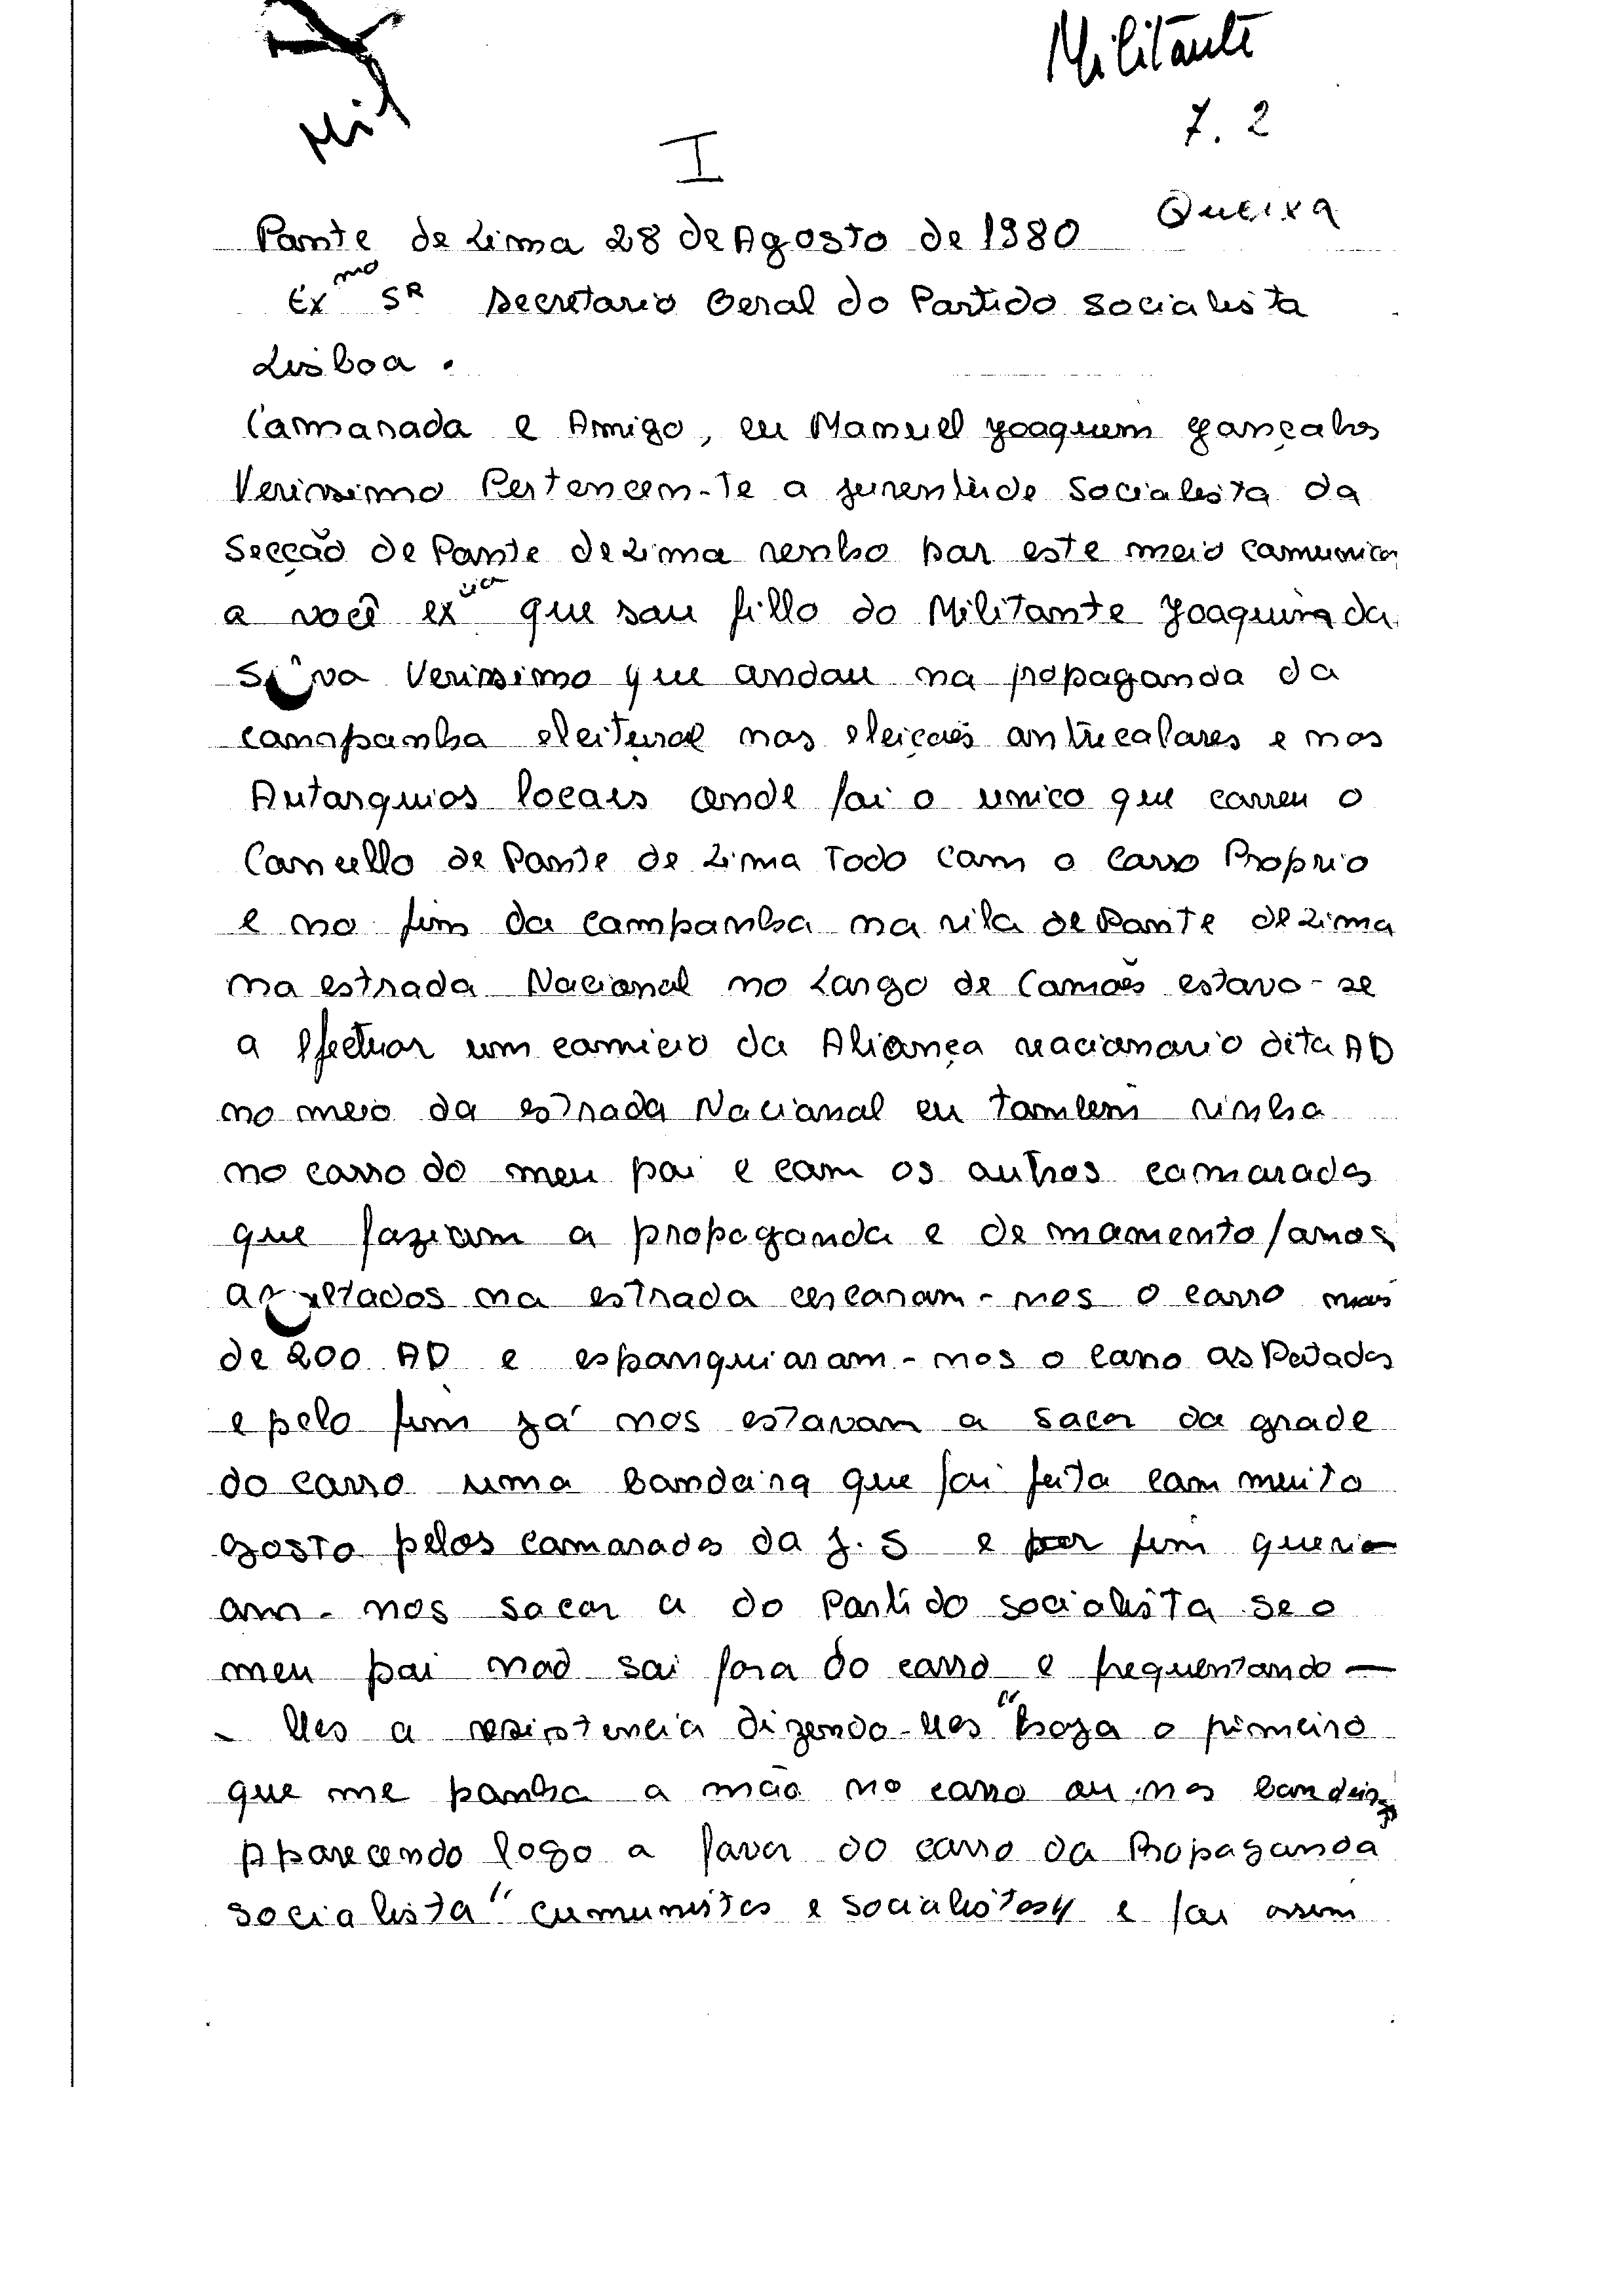 Militante
Mil
7. 2
I
Queixa
Ponte de Lima 28 de Agosto de 1980
Exmo SR Secretario Geral do Partido Socialista
Lisboa.
Camarada e Amigo, eu Manuel Joaquim Gonçalves
Verissimo Pertencen-te a juventude Socialista da
Secção de Ponte de Lima venho por este meio comunicar
a você excia que sou fillo do Militante Joaquim da
Silva Verissimo que andou na propaganda da
campanha eleitural nas eleições antrecalares e nas
Autarquias locais onde foi o unico que correu o
Concello de Ponte de Lima Todo com o carro Proprio
e no fim da campanha na vila de Ponte de Lima
na estrada Nacional no Largo de Camões estava-se
a efectuar um comicio da Aliança reacionario dita AD
no meio da estrada Nacional eu tambem vinha
no carro do meu pai e com os outros camaradas
que faziam a propaganda e de momento fomos
assultados na estrada cercaram-nos o carro mais
de 200 AD e espanquiaram-nos o carro as Patadas
e pelo fim já nos estavam a sacar da grade
do carro uma bandeira que foi feita com muito
gosto pelos camaradas da J.S e por fim queri-
am-nos sacar a do Partido socialista se o
meu pai não sai fora do carro e frequentando-
-lles a resistencia dizendo-lles "hoza o primeiro
que me ponha a mão no carro ou nas bandeiras
Aparecendo logo a favor do carro da Propaganda
socialista "cumunistas e socialistas" e foi assim